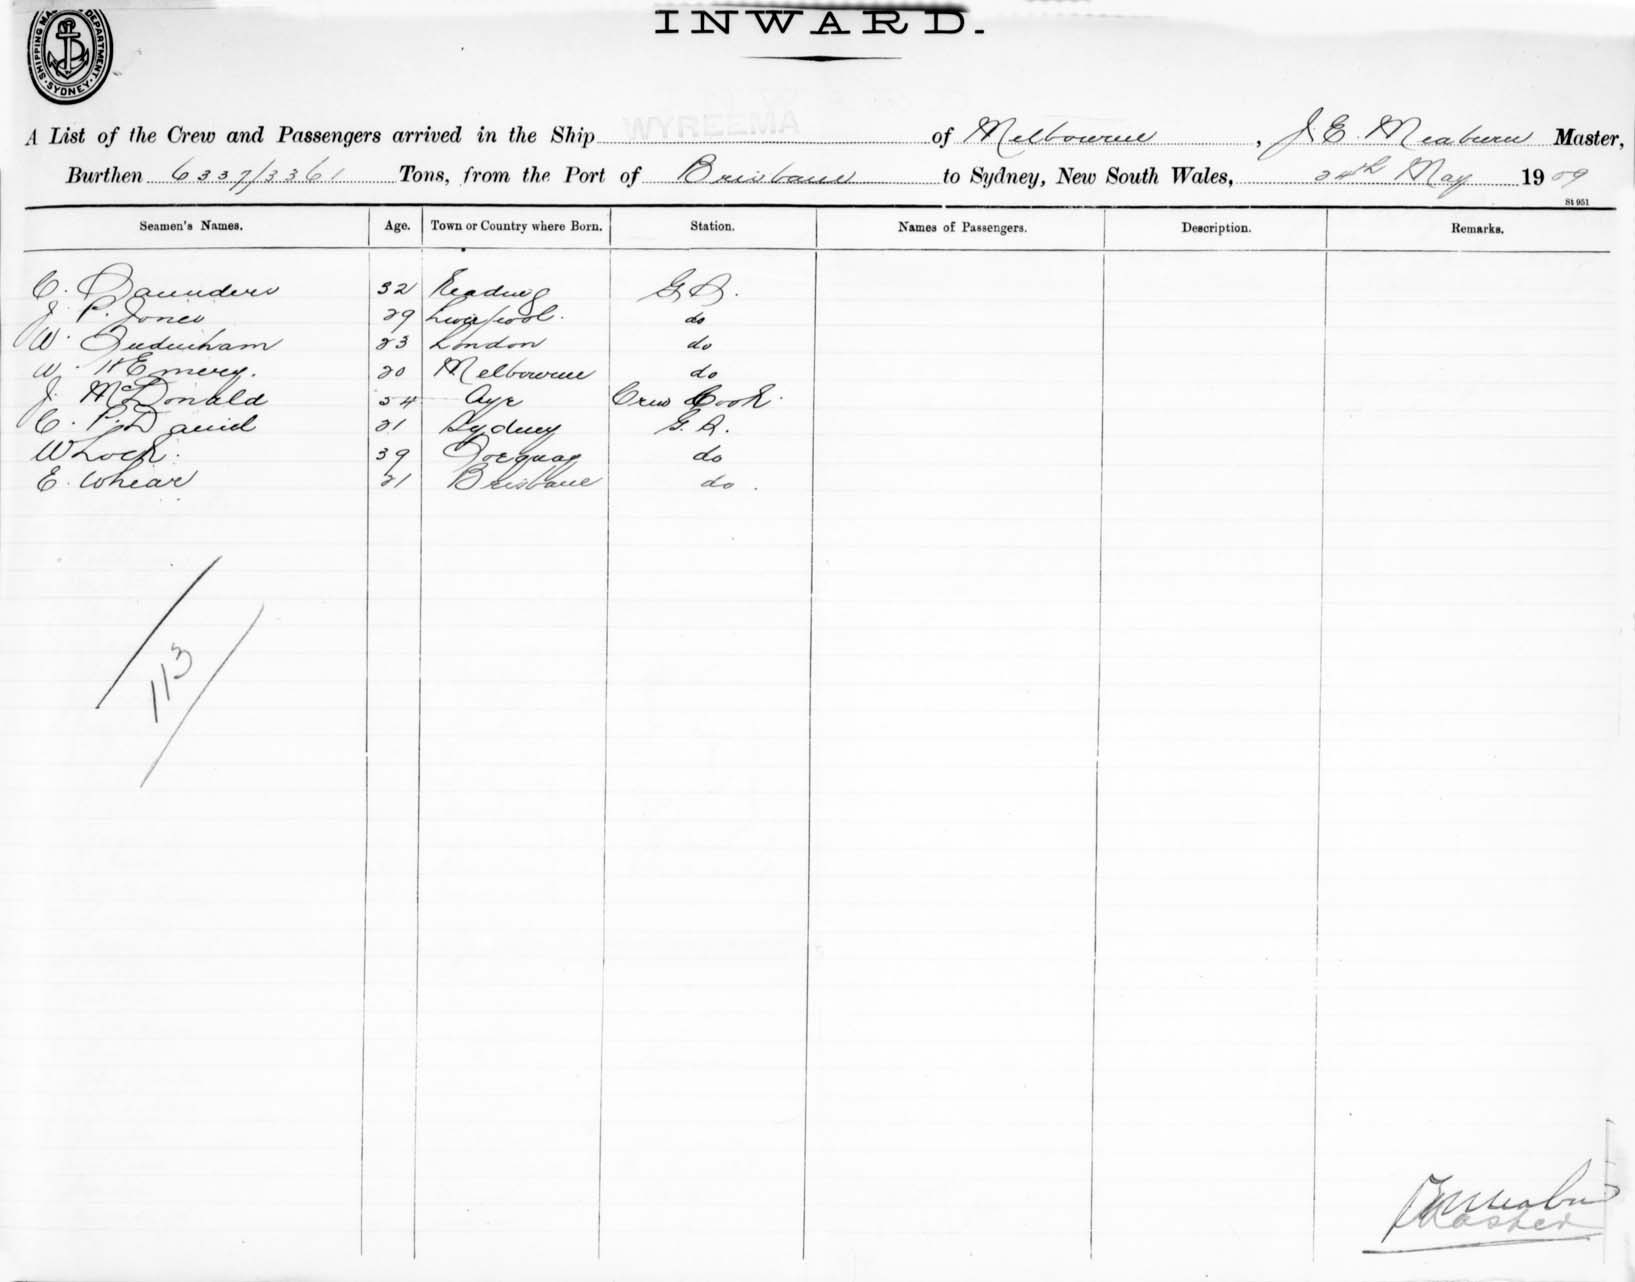 INWARD.
SHIPPING MASTER'S DEPARTMENT. SYDNEY.
A List of the Crew and Passengers arrived in the Ship WYREEMA of Melbourne, J. E. Meaburn Master,
Burthen 6337/3361 Tons, from the Port of Brisbane to Sydney, New South Wales, 24th May 1909
St 951
Seamen's Names. Age. Town or Country where Born. Station. Names of Passengers. Description. Remarks.
C. Saunders 32 Reading G.S.
J. P. Jones 29 Liverpool. do
W. 23 London do
W. H Emery. 20 Melbourne do
J. McDonald 54 Ayr Crew Cook.
C. P. David 21 Sydney G.S.
W Lock. 39 Torquay do
E. Whear 21 Brisbane do.
113
Master